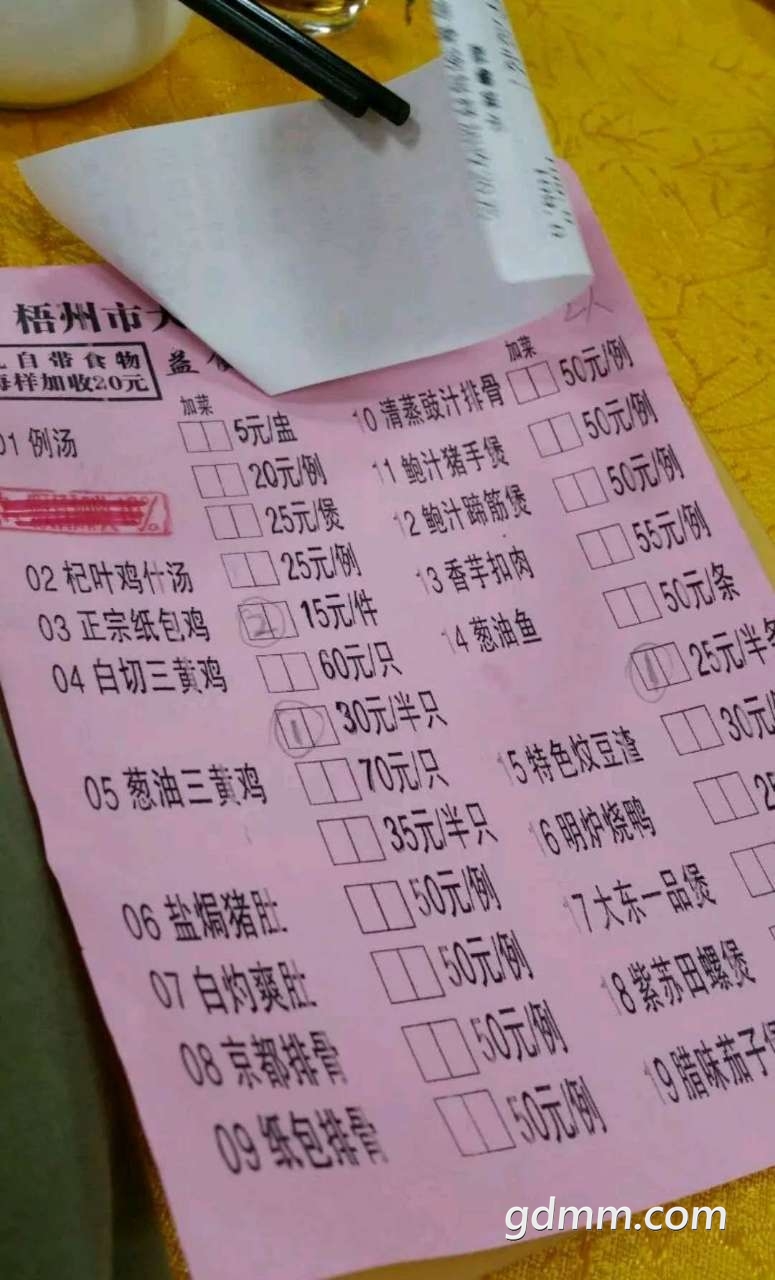 梧州市大
自带食物
每样加收20元
益
加菜
01 例汤 5元/盅
20元/例
25元/煲
02 杞叶鸡什汤 25元/例
03 正宗纸包鸡 2 15元/件
04 白切三黄鸡 60元/只
1 30元/半只
05 葱油三黄鸡 70元/只
35元/半只
06 盐焗猪肚 50元/例
07 白灼爽肚 50元/例
08 京都排骨 50元/例
09 纸包排骨 50元/例
加菜
10 清蒸豉汁排骨 50元/例
11 鲍汁猪手煲 50元/例
12 鲍汁蹄筋煲 50元/例
13 香芋扣肉 55元/例
14 葱油鱼 50元/条
1 25元/半条
15 特色炆豆渣 30元/
16 明炉烧鸭 25
17 大东一品煲
18 紫苏田螺煲
19 腊味茄子煲
gdmm.com